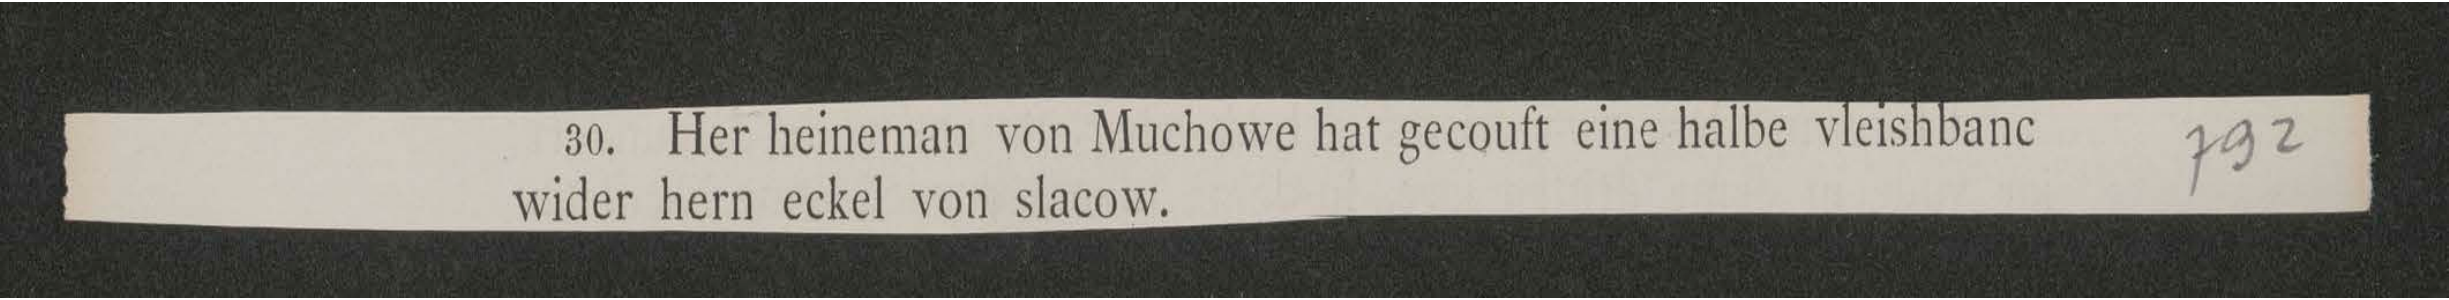 30. Her heineman von Muchowe hat gecouft eine halbe vleishbanc 792
wider hern eckel von slacow.